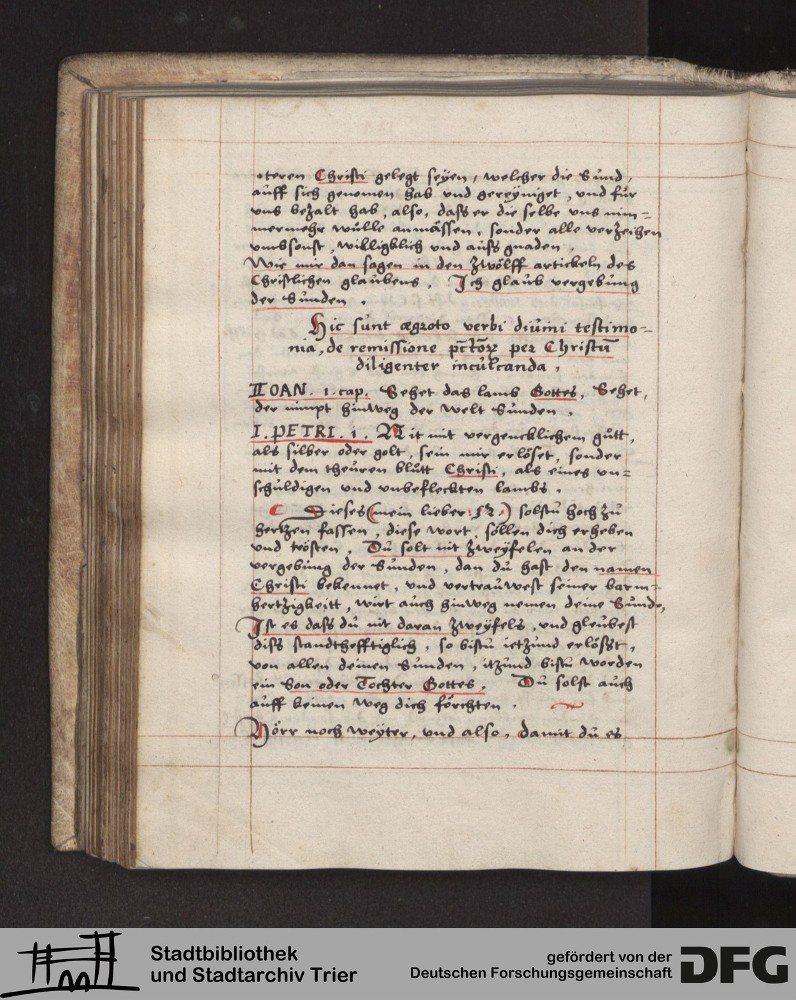 steren Christi gelegt seyen, welcher die Sund,
auff sich genomen hab vnd gereyniget, vnd für
vns bezalt hab, also, dass er die selbe vns nim=
mermehr wülle anmassen, sonder alle verzeihen
vmbsonst, williglich vnd auss gnaden.
Wie mir dan sagen in den zwölff artickeln des
Christlichen glaubens. Ich glaub vergebung
der Sunden.
Hic sunt ægroto verbi diuini testimo=
nia, de remissione pctõrꝝ per Christũ
diligenter inculcanda,
II IOAN. 1. cap. Sehet das lamb Gottes, Sehet,
der nimpt hinweg der welt Sunden.
I. PETRI. 1. Nit mit vergencklichem gutt,
als silber oder golt, sein mir erlöset, sonder
mit dem theuren blutt Christi, als eines vn=
schuldigen vnd vnbefleckten lambs.
Dieses (mein lieber: N.) solstu hoch zu
hertzen fassen, diese wort, sollen dich erheben
vnd trösten. Du solt nit zweyfelen an der
vergebung der Sunden, dan du hast den namen
Christi bekennet, vnd vertrauwest seiner barm=
hertzigkeitt, wirt auch hinweg nemen deine Sunde,
Ist es dass du nit daran zweyfels, vnd gleubest
diss standthefftiglich, so bistu ietzund erlösst,
von allen deinen Sunden, itzund bistu worden
ein Son oder Tochter Gottes. Du solst auch
auff keinen weg dich förchten.
Hörr noch weyter, vnd also, damit du es
Stadtbibliothek
und Stadtarchiv Trier
gefördert von der
Deutschen Forschungsgemeinschaft
DFG